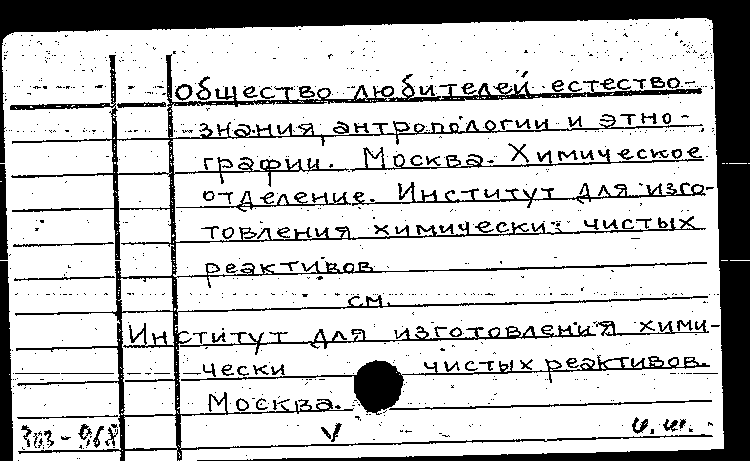 Общество любителей естество-
знания, антропологии и этно-
графии. Москва. Химическое
отделение. Институт для изго-
товления химически чистых
реактивов
см.
Институт для изготовления хими-
чески чистых реактивов.
Москва.
303-968 V и.ш.